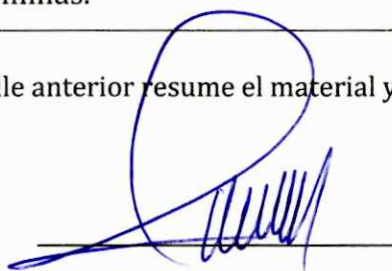 lle anterior resume el material y